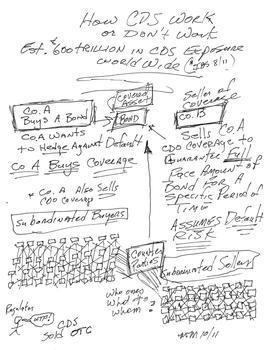 How CDS Work
or Don't Work
Est. $600 TRILLION IN CDS EXPOSURE
WORLD WIDE
COVERED
ASSET
Seller of
coverage
Co. A
Buys A Bond
BOND
Co. B
Co. A WANTS
to Hedge Against Default
Co A Buys Coverage
Sells Co. A
CDO COVERAGE to
GUARANTEE Full
Face Amount of
Bond For A
Specific Period of
Time
ASSUMES Default
Risk
Co. A Also Sells
CDO Coverage
Subordinated Buyers
Counter
Parties
Subordinated Sellers
Who owes
What to
whom?
Regulator
CDS
Sold OTC
10/11